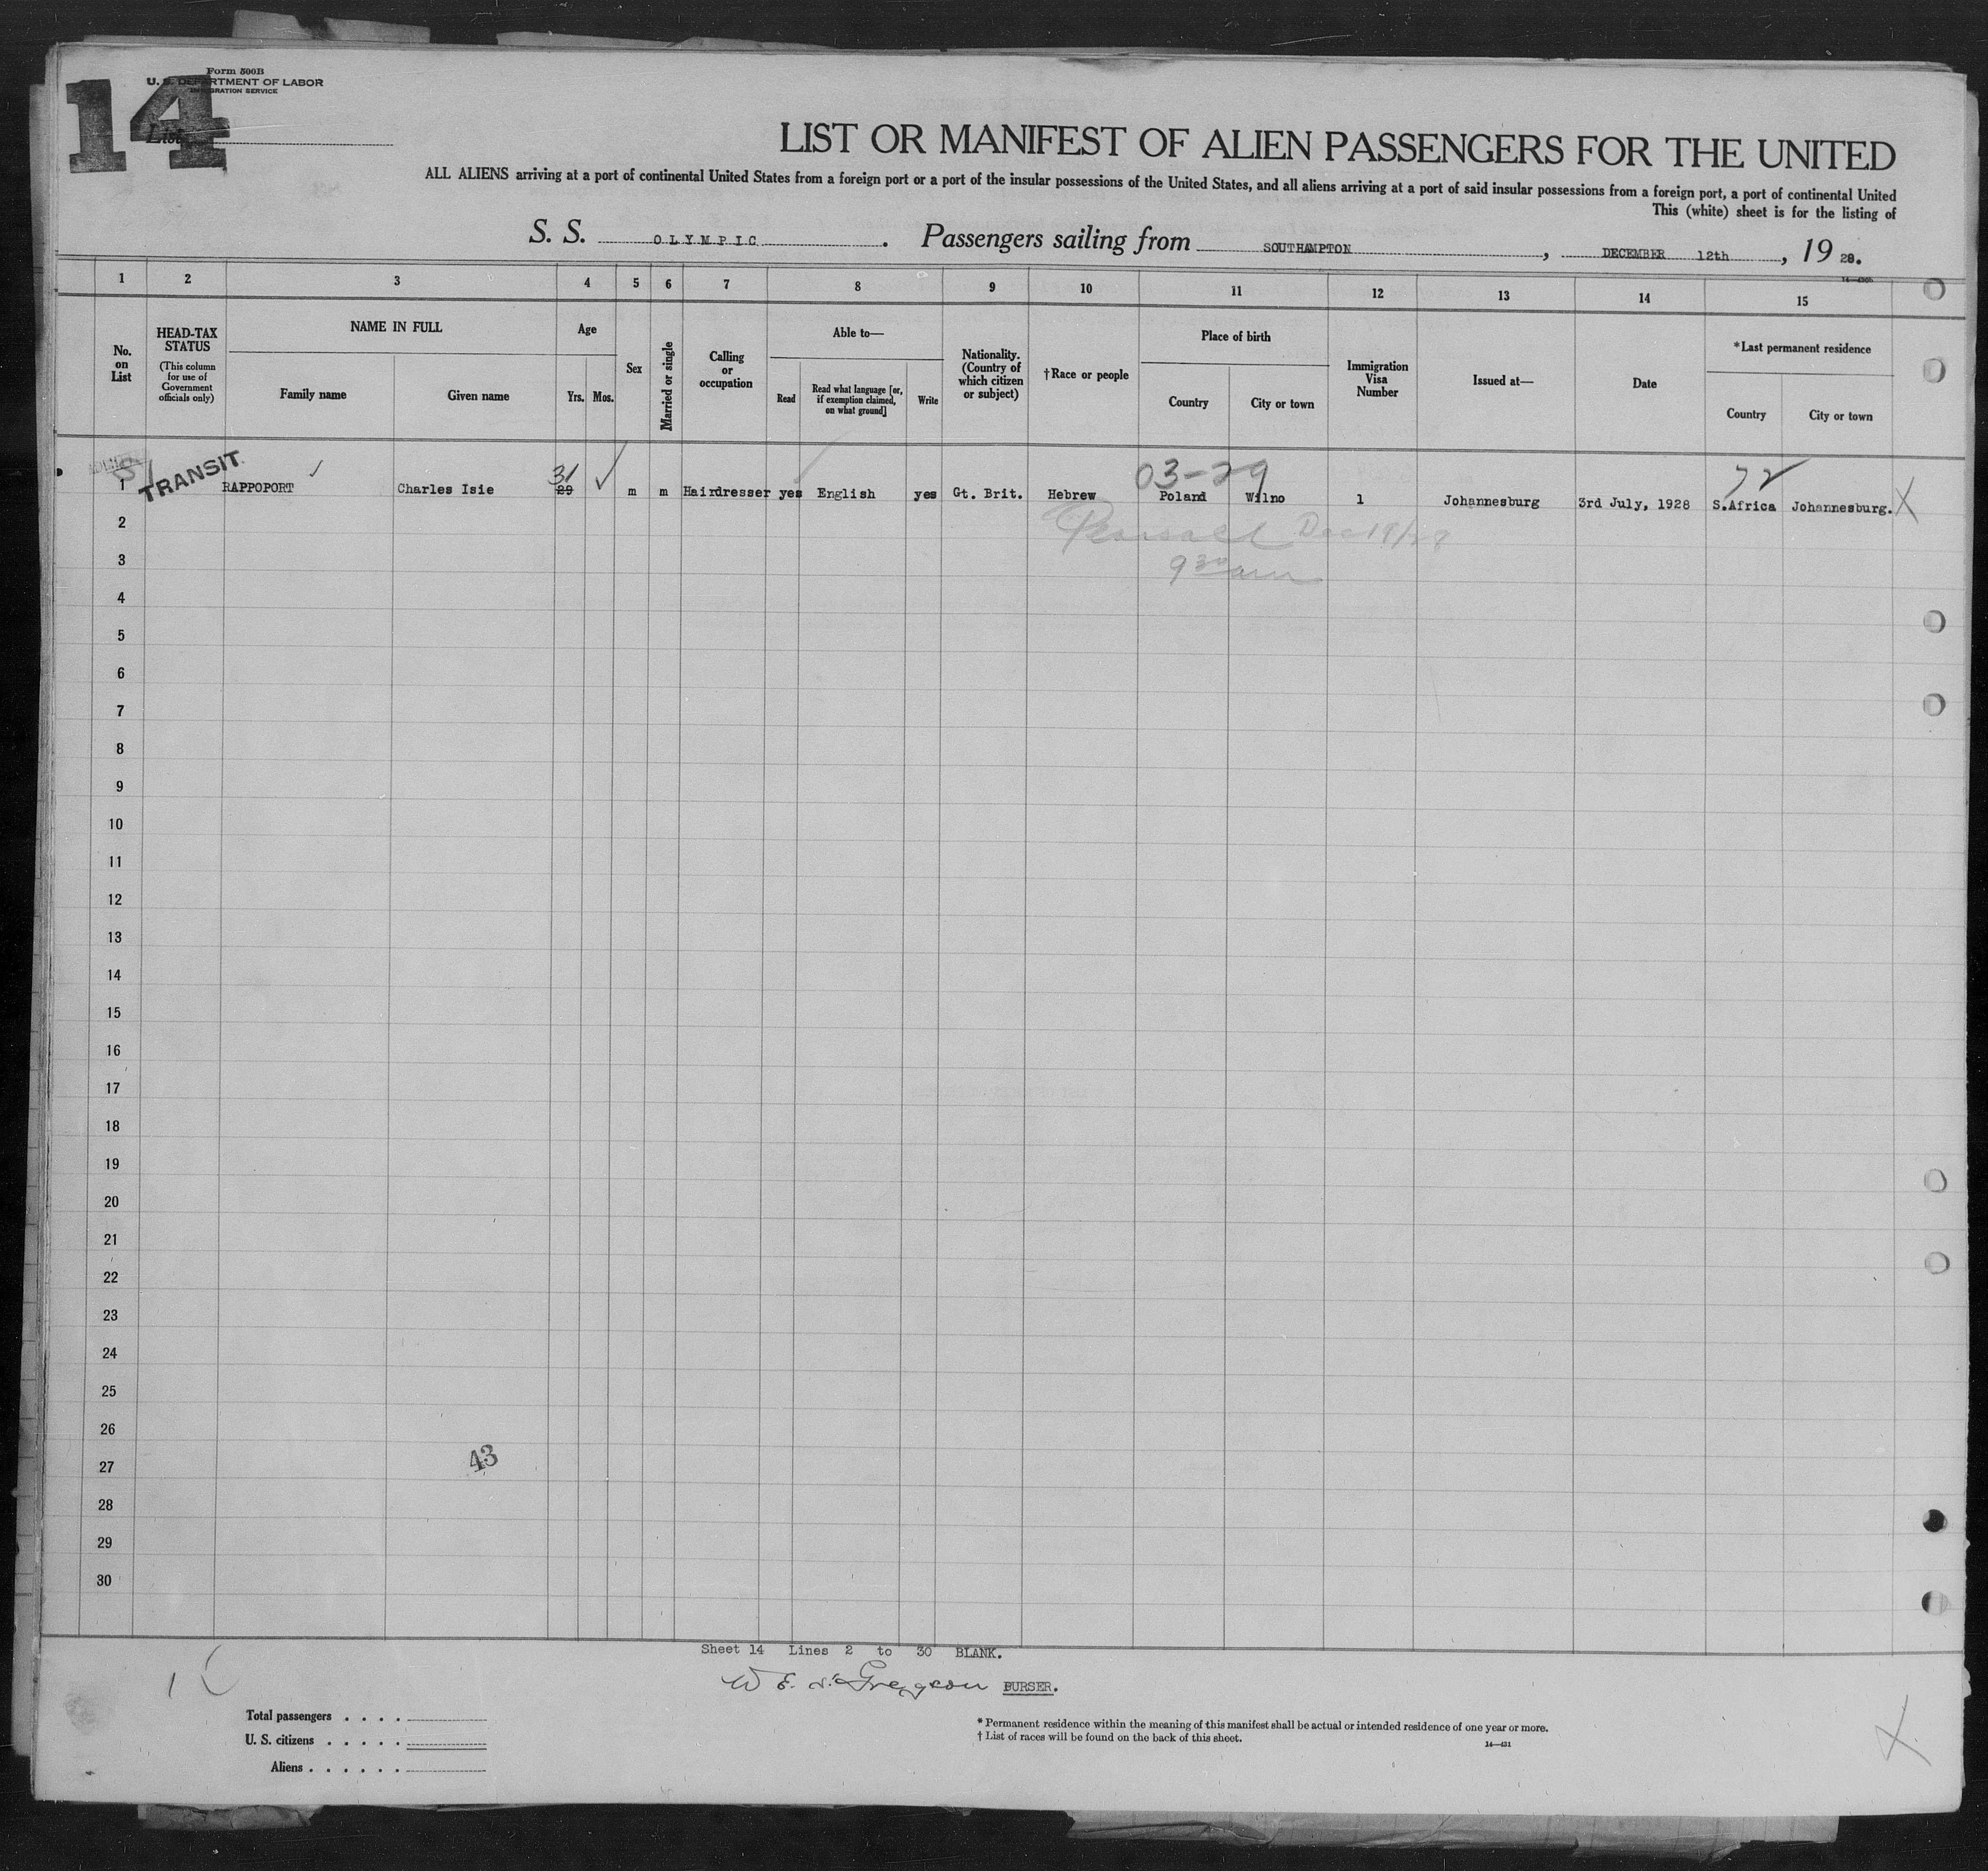 14
Form 500B
U. S. DEPARTMENT OF LABOR
IMMIGRATION SERVICE
List
LIST OR MANIFEST OF ALIEN PASSENGERS FOR THE UNITED
ALL ALIENS arriving at a port of continental United States from a foreign port or a port of the insular possessions of the United States, and all aliens arriving at a port of said insular possessions from a foreign port, a port of continental United
This (white) sheet is for the listing of
S. S. OLYMPIC . Passengers sailing from SOUTHAMPTON , DECEMBER 12th , 19 28.
1 2 3 4 5 6 7 8 9 10 11 12 13 14 15
No. on List
HEAD-TAX STATUS
(This column for use of Government officials only)
NAME IN FULL
Family name Given name
Age
Yrs. Mos.
Sex
Married or single
Calling or occupation
Able to—
Read
Read what language [or, if exemption claimed, on what ground]
Write
Nationality. (Country of which citizen or subject)
†Race or people
Place of birth
Country City or town
Immigration Visa Number
Issued at—
Date
*Last permanent residence
Country City or town
31 03-29 72
1 TRANSIT RAPPOPORT Charles Isie 29 m m Hairdresser yes English yes Gt. Brit. Hebrew Poland Wilno 1 Johannesburg 3rd July, 1928 S.Africa Johannesburg. X
2 Dec 19/28
3 9 30 am
4
5
6
7
8
9
10
11
12
13
14
15
16
17
18
19
20
21
22
23
24
25
26
27
28
29
30
43
Sheet 14 Lines 2 to 30 BLANK.
Gregson PURSER.
1
Total passengers . . . .
U. S. citizens . . . . .
Aliens . . . . . .
* Permanent residence within the meaning of this manifest shall be actual or intended residence of one year or more.
† List of races will be found on the back of this sheet.
14—431
X